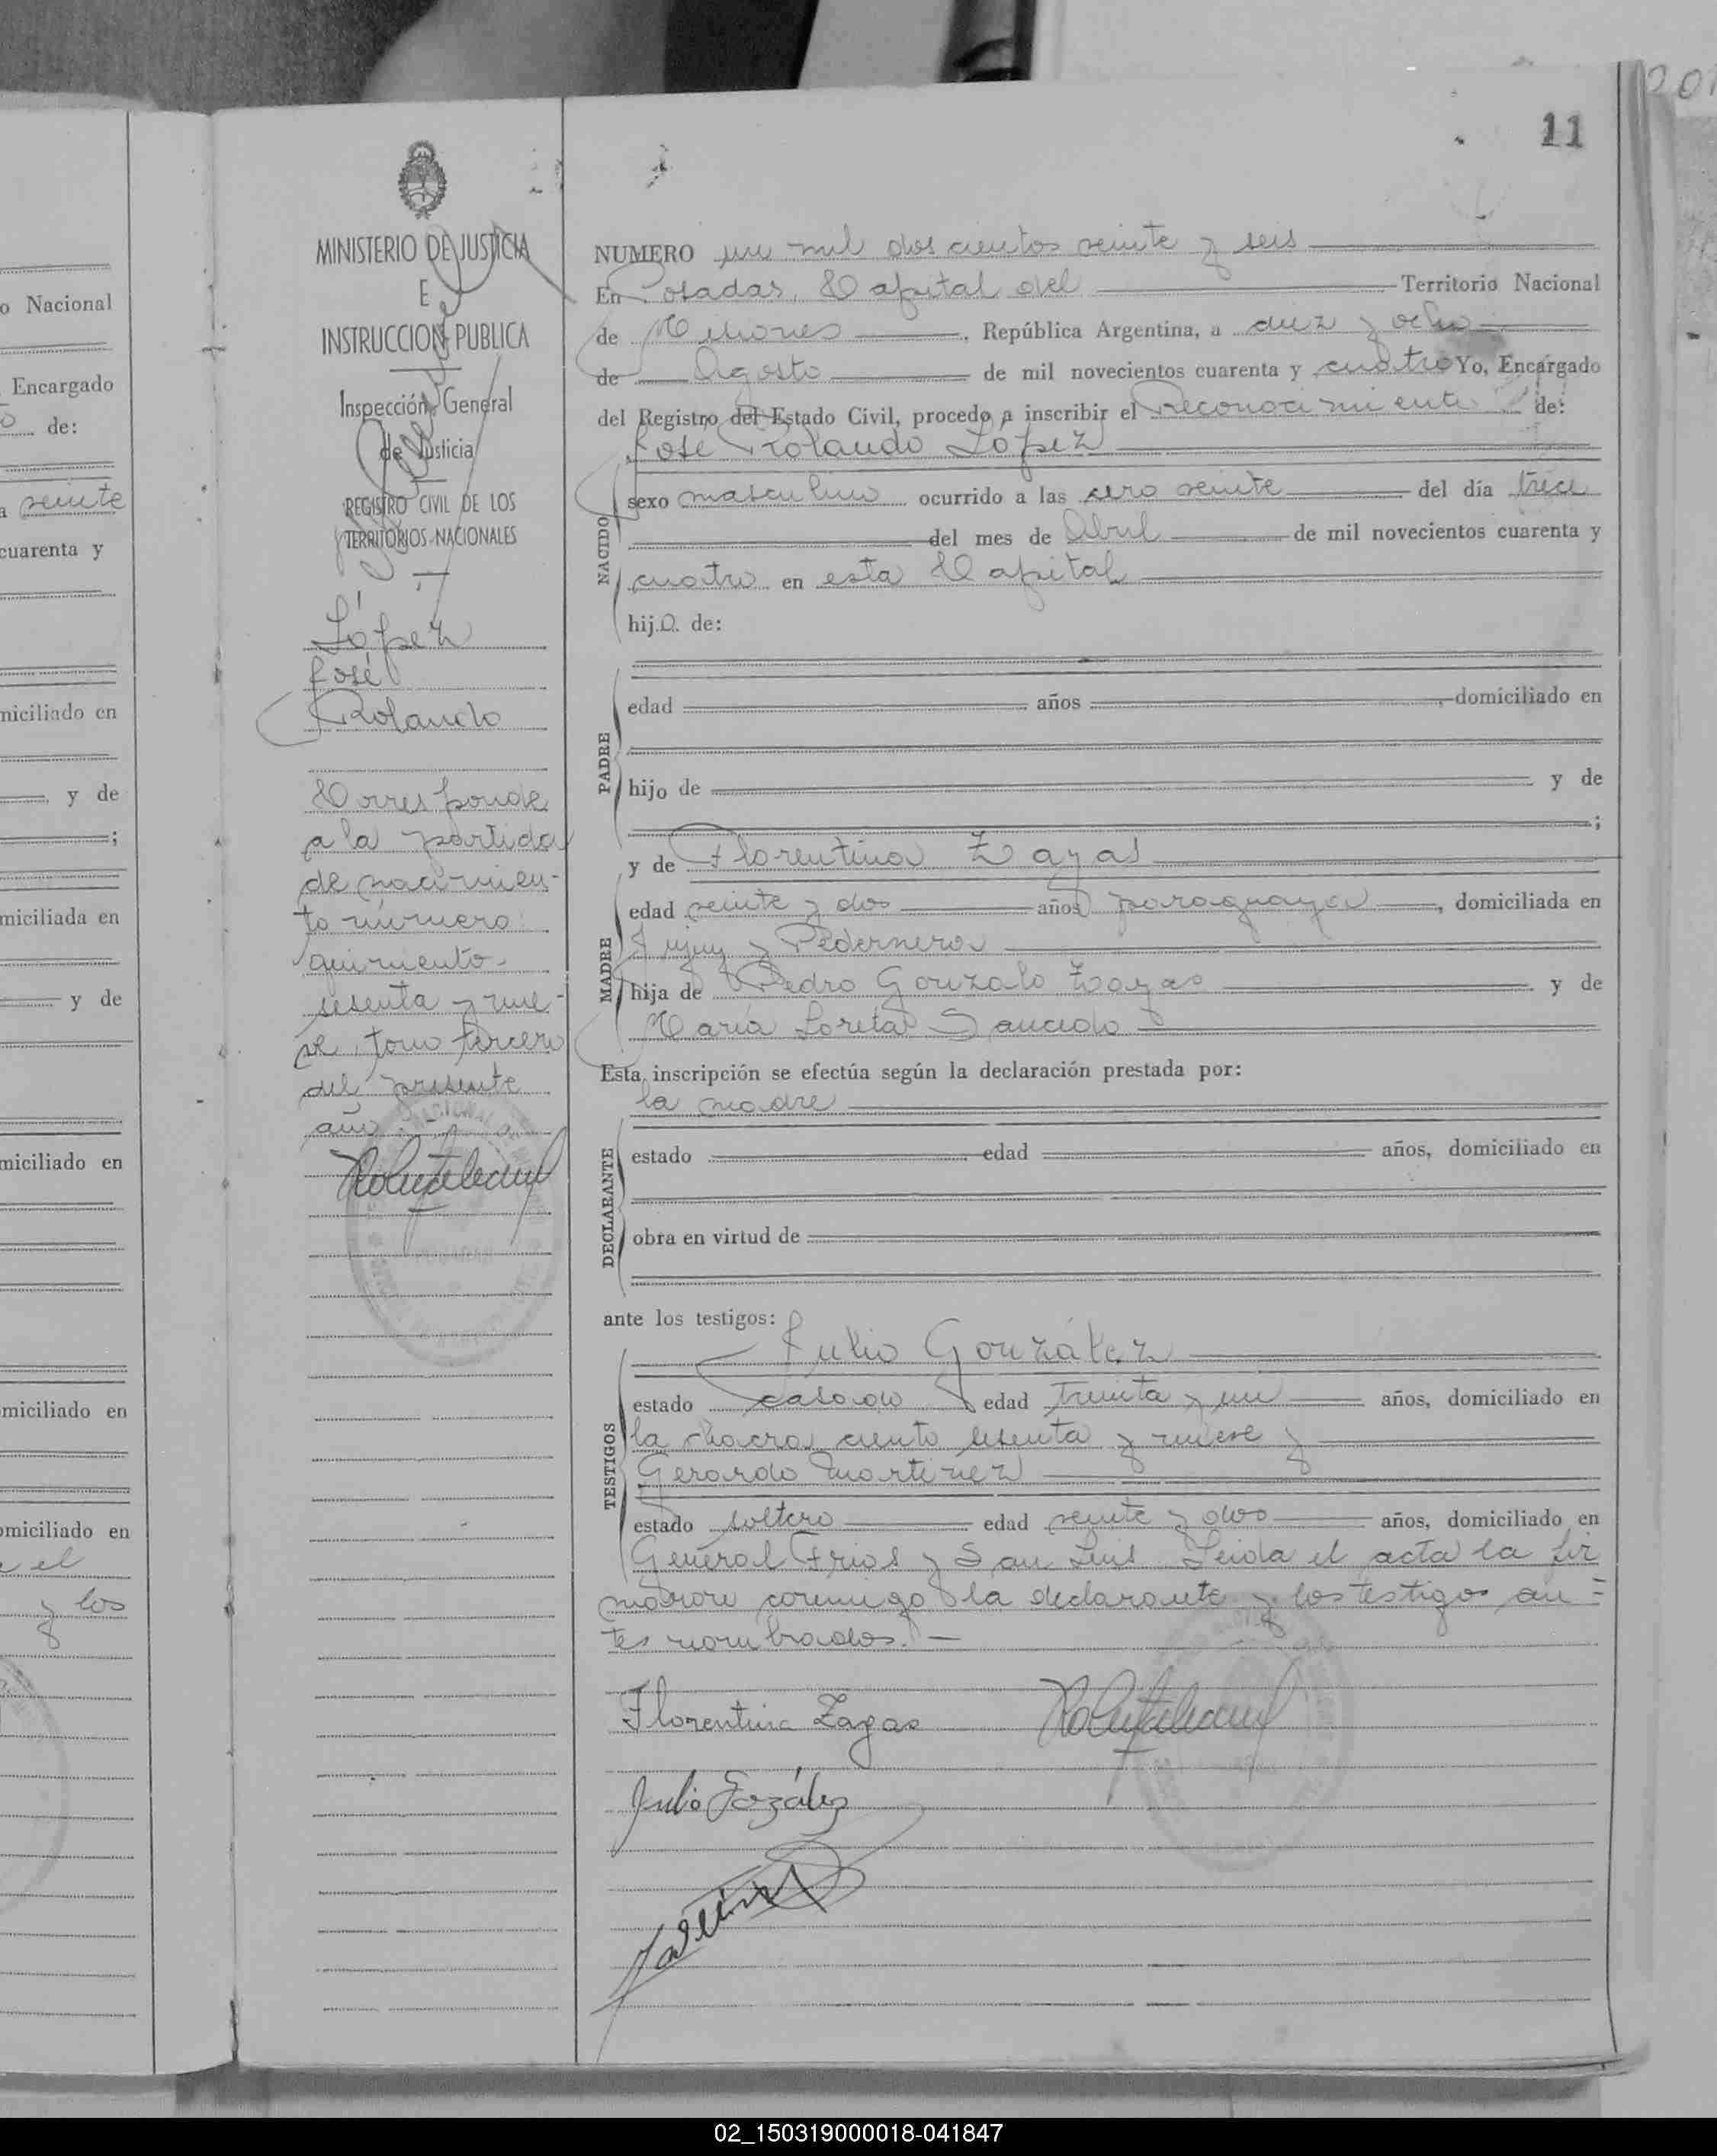 11
MINISTERIO DE JUSTICIA
E
INSTRUCCION PUBLICA
Inspección General
de Justicia
REGISTRO CIVIL DE LOS
TERRITORIOS NACIONALES
López
José
Rolando
Corresponde
a la partida
de nacimien-
to número
quiniento-
sesenta y nue-
ve, tomo tercero
del presente
año.-
NUMERO un mil dos cientos veinte y seis
En Posadas, Capital del Territorio Nacional
de Misiones, República Argentina, a diez y ocho
de Agosto de mil novecientos cuarenta y cuatro Yo, Encargado
del Registro del Estado Civil, procedo a inscribir el Reconocimiento de:
José Rolando López
NACIDO
sexo masculino ocurrido a las cero veinte del día trece
del mes de Abril de mil novecientos cuarenta y
cuatro en esta Capital
hijo. de:
PADRE
edad años , domiciliado en
hijo de y de
;
y de Florentina Zayas
MADRE
edad veinte y dos años paraguaya, domiciliada en
Jujuy y Pedernera
hija de Pedro Gonzalo Zayas y de
María Loreta Saucedo
Esta inscripción se efectúa según la declaración prestada por:
la madre
DECLARANTE
estado edad años, domiciliado en
obra en virtud de
ante los testigos:
Julio González
TESTIGOS
estado casado edad treinta y un años, domiciliado en
la chacra ciento sesenta y nueve y
Gerardo Martinez
estado soltero edad veinte y dos años, domiciliado en
General Frias y San Luis Leida el acta la fir
maron conmigo la declarante y los testigos an=
tes nombrados.-
Florentina Zayas
Julio Gozález
o Nacional
Encargado
de:
a veinte
cuarenta y
miciliado en
y de
;
miciliada en
y de
miciliado en
miciliado en
omiciliado en
el
y los
02_150319000018-041847